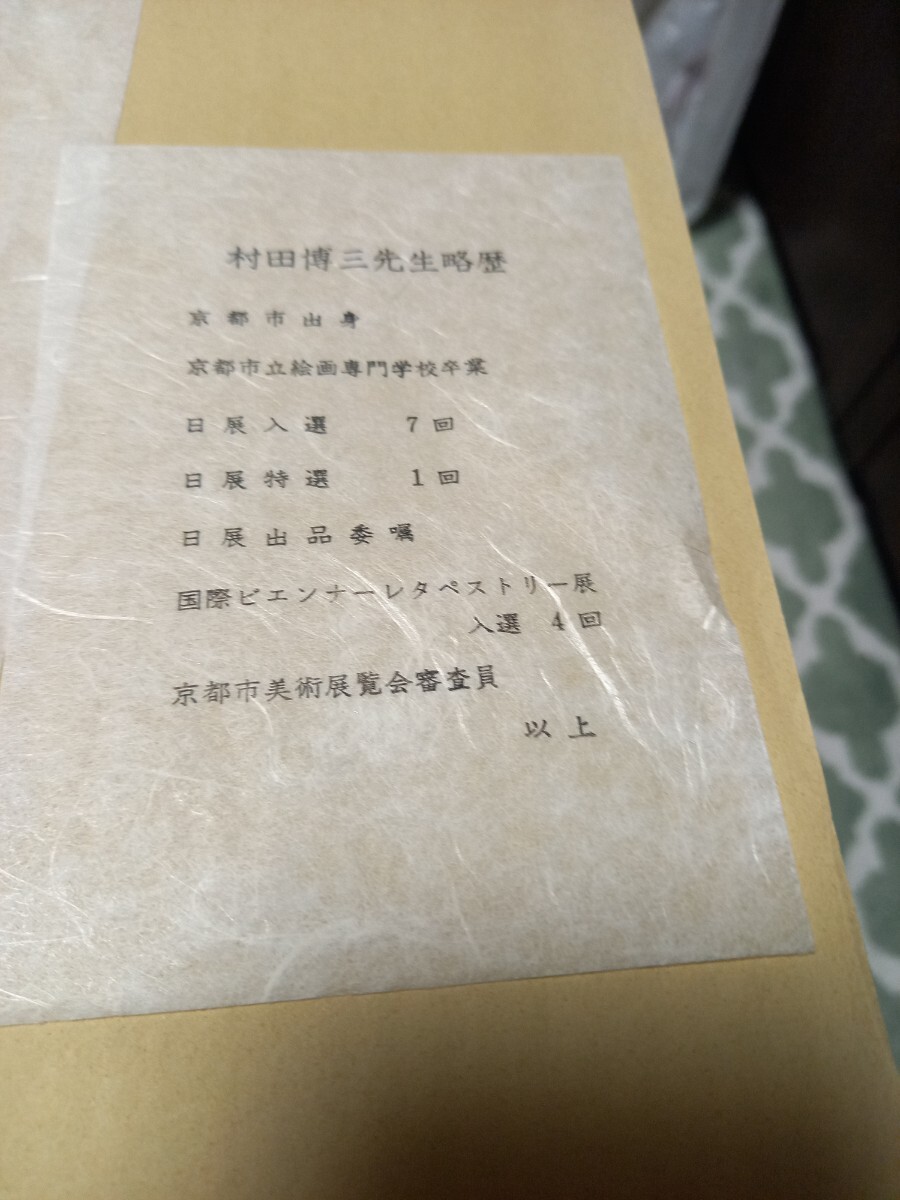 村田博三先生略歴
京都市出身
京都市立絵画専門学校卒業
日展入選 7回
日展特選 1回
日展出品委嘱
国際ビエンナーレタペストリー展
入選 4回
京都市美術展覧会審査員
以上